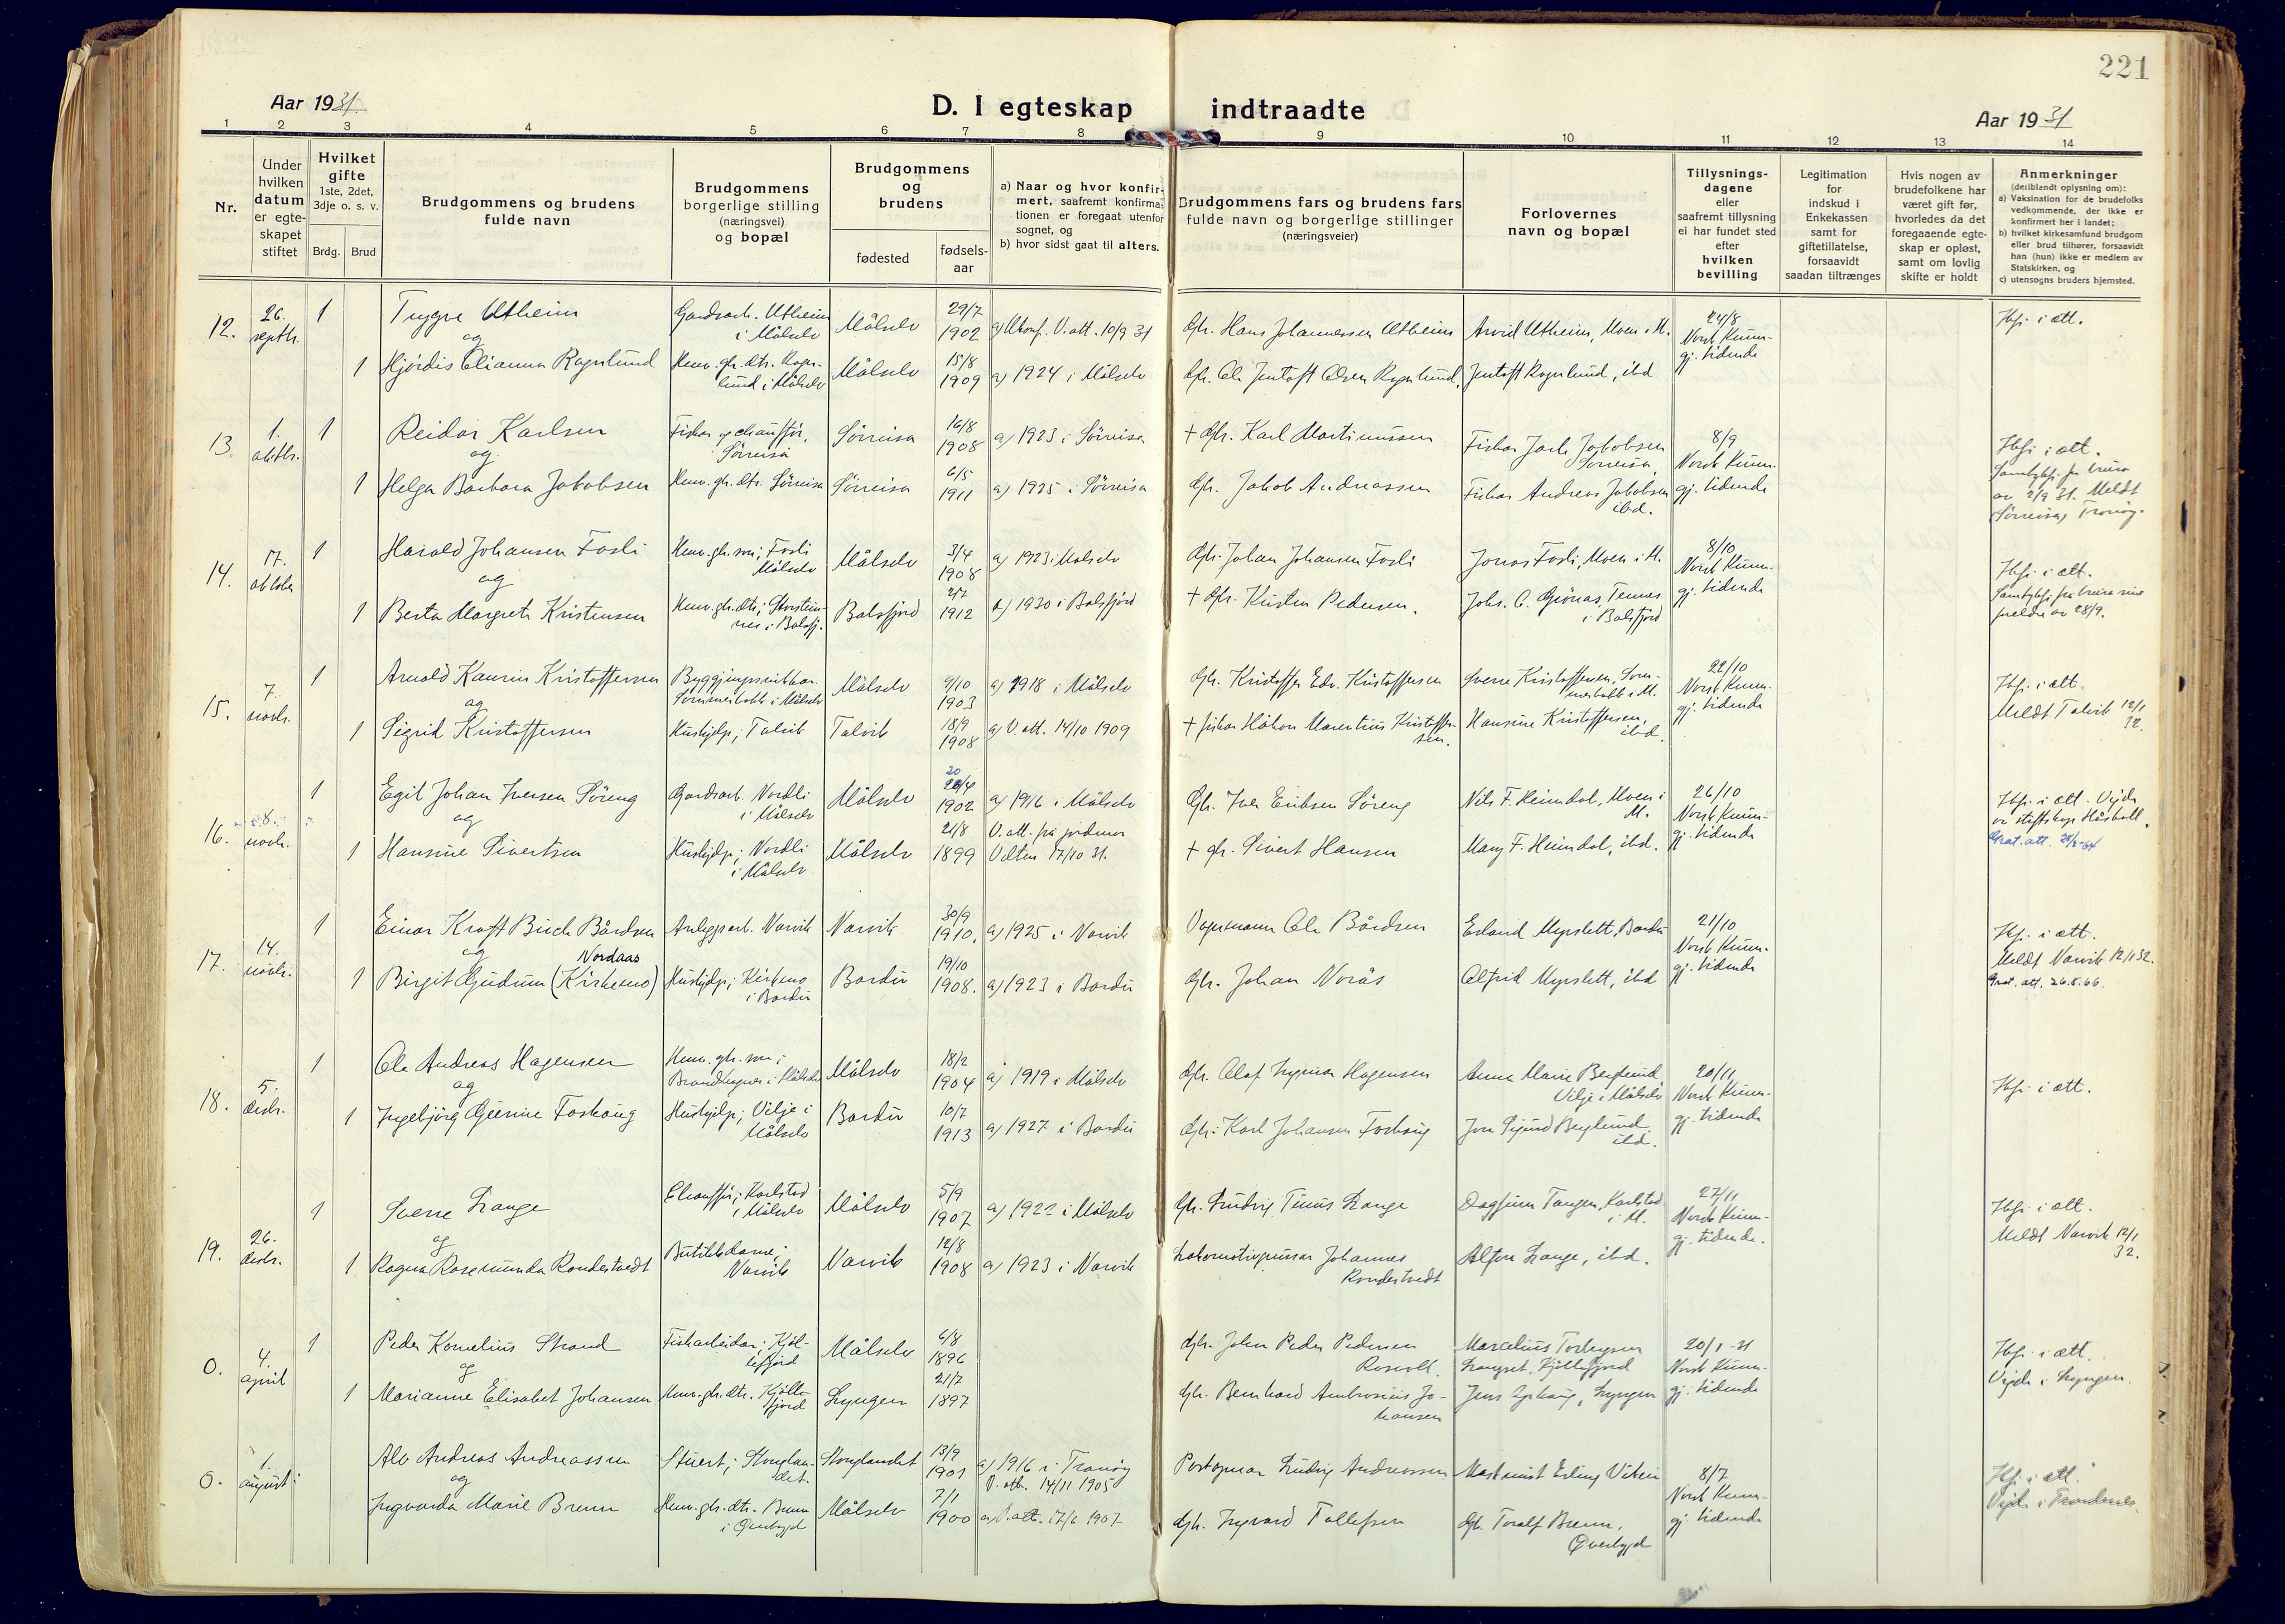 221
Aar 1931.
D. I egteskap indtraadte
Aar 1931
1 2 3 4 5 6 7 8 9 10 11 12 13 14
Nr.
Under
hvilken
datum
er egte-
skapet
stiftet
Hvilket
gifte
1ste, 2det,
3dje o. s. v.
Brdg. Brud
Brudgommens og brudens
fulde navn
Brudgommens
borgerlige stilling
(næringsvei)
og bopæl
Brudgommens
og
brudens
fødested
fødsels-
aar
a) Naar og hvor konfir-
mert, saafremt konfirma-
tionen er foregaat utenfor
sognet, og
b) hvor sidst gaat til alters.
Brudgommens fars og brudens fars
fulde navn og borgerlige stillinger
(næringsveier)
Forlovernes
navn og bopæl
Tillysnings-
dagene
eller
saafremt tillysning
ei har fundet sted
efter
hvilken
bevilling
Legitimation
for
indskud i
Enkekassen
samt for
giftetillatelse,
forsaavidt
saadan tiltrænges
Hvis nogen av
brudefolkene har
været gift før,
hvorledes da det
foregaaende egte-
skap er opløst,
samt om lovlig
skifte er holdt
Anmerkninger
(deriblandt oplysning om):
a) Vaksination for de brudefolks
vedkommende, der ikke er
konfirmert her i landet;
b) hvilket kirkesamfund brudgom
eller brud tilhører, forsaavidt
han (hun) ikke er medlem av
Statskirken, og
c) utensogns bruders hjemsted.
12. 26. septbr. 1 Trygve Utheim
Gardsarb. Utheim
i Målselv
Målselv 29/7 1902
Gbr. Hans Johannessen Utheim
Arvid Utheim, Moen i M.
24/8
Norsk Kunn-
gj. tidende
og
1 Hjördis Elianna Rognlund
Hmv. gbr. dtr. Rogn-
lund i Målselv
Målselv 15/8 1909 a) 1924 i Målselv
Gbr. Ole Jentoft Olsen Rognlund,
Jentoft Rognlund, ibd
13. 1. oktbr. 1 Reidar Karlsen
Fisker og chaufför,
Sörreisa
Sörreisa 16/8 1908 a) 1923 i Sörreisa
+ Gbr. Karl Martinussen
Jakobsen
Sörreisa,
8/9
Norsk Kunn-
gj. tidende
og
1 Helga Barbara Jakobsen
Hmv. gbr. dtr. Sörreisa
Sörreisa 6/5 1911 a) 1925 i Sörreisa
Gbr. Jakob Andreassen
Fisker Andreas Jakobsen
ibd.
14. 17. oktober 1 Harald Johansen Fosli
Hmv. gbr. sön; Fosli
Målselv
Målselv 3/4 1908 a) 1923 i Målselv
Gbr. Johan Johansen Fosli
Jonas Fosli, Moen i M.
8/10
Norsk Kunn-
gj. tidende
og
1 Berta Margrete Kristensen
Hmv. gbr. dtr; Storstein-
nes i Balsfj.
Balsfjord 2/2 1912 a) 1930 i Balsfjord
+ Gbr. Kristen Pedersen.
Johs. C. Grönås, Tennes
i Balsfjord
15. 7. novbr. 1 Arnold Kaurin Kristoffersen
Målselv 9/10 1903 a) 1918 i Målselv
Gbr. Kristoffer Edv. Kristoffersen
Sverre Kristoffersen,
22/10
Norsk Kunn-
gj. tidende
Meldt Talvik 12/1
32.
og
1 Sigrid Kristoffersen
Hushjelp; Talvik
Talvik 18/9 1908 a) V. att. 14/10 1909
+ fisker Håkon Marentius Kristoffer-
sen.
Hansine Kristoffersen,
ibd.
16. 8. novbr. 1 Egil Johan Iversen Söreng
Gardsarb. Nordli
i Målselv
Målselv 20 1902 a) 1916 i Målselv
Gbr. Iver Eriksen Söreng
Nils F. Heimdal, Moen i
M.
26/10
Norsk Kunn-
gj. tidende
og
1 Hansine Sivertsen
Hushjelp; Nordli
i Målselv
Målselv 21/8 1899
+ gbr. Sivert Hansen
Mary F. Heimdal, ibd.
17. 14. novbr. 1 Einar Kraft Buch Bårdsen
Anleggsarb. Narvik
Narvik 30/9 1910. a) 1925 i Narvik
Vognmann Ole Bårdsen
Erland Myrslett, Bardu
21/10
Norsk Kunn-
gj. tidende
Meldt Narvik 12/1 32.
26.5.66.
og Nordaas
1 Birgit Gudrun (Kirkemo)
Hushjelp; Kirkemo
i Bardu
Bardu 19/10 1908. a) 1923 i Bardu
Gbr. Johan Norås
Alfrid Myrslett, ibd
18. 5. desbr. 1 Ole Andreas Hagensen
Hmv. gbr. sön;
Målselv 18/2 1904 a) 1919 i Målselv
Gbr. Olaf Ingmar Hagensen
Anna Marie Berglund
Vilje i Målselv
20/11
Norsk Kunn-
gj. tidende
og
1 Ingebjörg Guruine Foshaug
Hushjelp; Vilje i
Målselv
Bardu 10/7 1913 a) 1927 i Bardu
Gbr. Karl Johansen Foshaug
Jon Sigurd Berglund
ibd.
19. 26. desbr. 1 Sverre Lange
Chaufför; Karlstad
i Målselv
Målselv 5/9 1907 a) 1922 i Målselv
Gbr. Ludvig Tinus Lange
Dagfinn Tangen, Karlstad
i M.
27/11
Norsk Kunn-
gj. tidende.
Meldt Narvik 12/1
32.
og
1 Ragna Rosemunda Rondestvedt
Butikkdame;
Narvik
Narvik 12/8 1908 a) 1923 i Narvik
Lokomotivpusser Johannes
Rondestvedt
Alfon Lange, ibd.
0. 4. april 1 Peder Kornelius Strand
Fiskarbeider; Kjöl-
lefjord
Målselv 6/8 1896
Gbr. John Peder Pedersen
Rosvoll.
Marcelius Torbergsen
Kjöllefjord
20/1-31
Norsk Kunn-
gj. tidende
Vigde i Lyngen.
og
1 Marianne Elisabet Johansen
Hmv. gbr. dtr. Kjölle-
fjord
Lyngen 21/7 1897
Gbr. Bernhard Ambrosius Jo-
hansen
0. 1. august Alv Andreas Andreassen
Stuert; Stonglan-
det.
Stonglandet 13/9 1901 a) 1916 i Tranöy
V. att. 14/11 1905
Postopnar Ludvig Andreassen
Maskinist Erling Viken
8/7
Norsk Kunn-
gj. tidende
Vigde i Trondenes.
og
Ingvarda Marie Brenn
Hmv. gbr. dtr. Brenn
i Överbygd
Målselv 7/1 1900
Gbr. Ingvard Tollefsen
Gbr. Toralf Brenn,
Överbygd